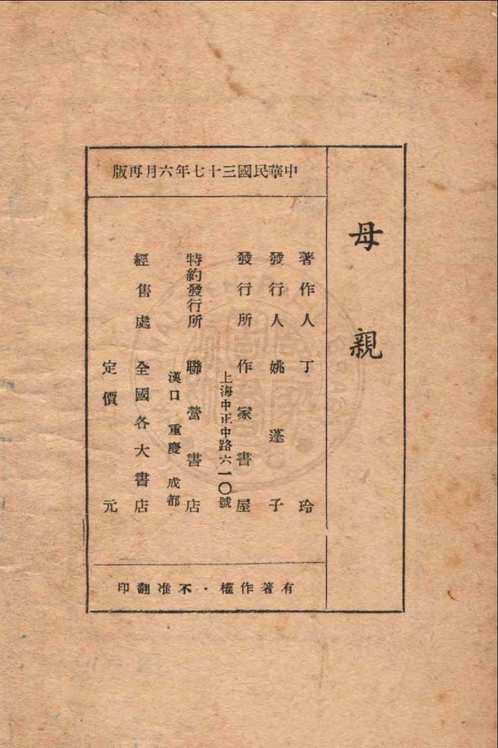 母親
中華民國三十七年六月再版
著作人 丁玲
發行人 姚蓬子
發行所 作家書屋
上海中正中路六一〇號
特約發行所 聯營書店
漢口 重慶 成都
經售處 全國各大書店
定價 元
有著作權・不准翻印